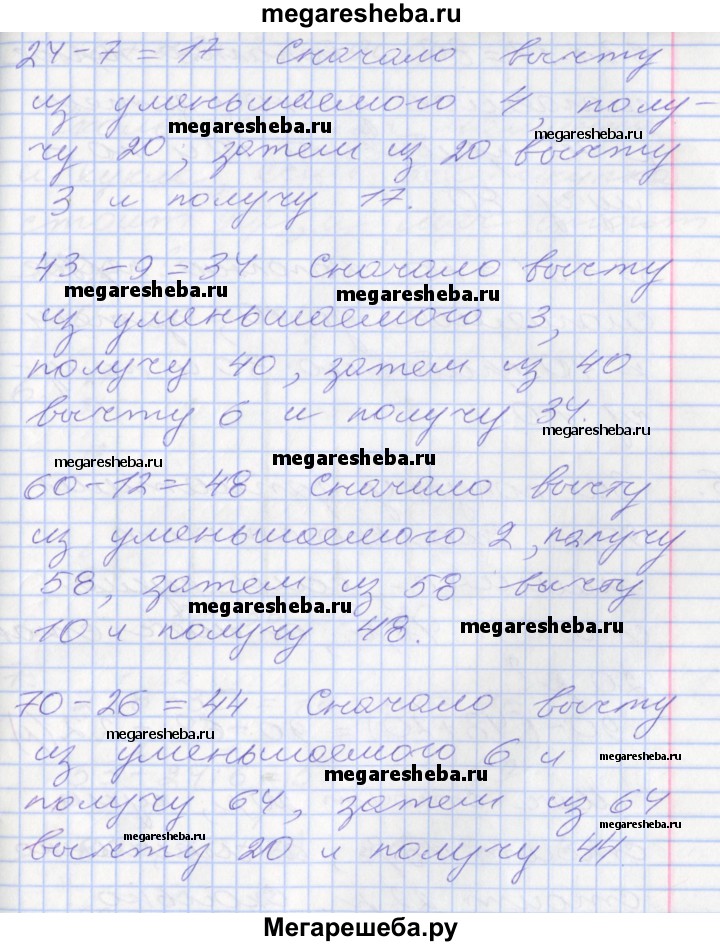 megaresheba.ru
24-7=17 Сначало вычту
из уменьшаемого 4, полу-
megaresheba.ru
megaresheba.ru
чу 20, затем из 20 вычту
3 и получу 17.
43-9=34 Сначало вычту
megaresheba.ru
megaresheba.ru
из уменьшаемого 3,
получу 40, затем из 40
вычту 6 и получу 34.
megaresheba.ru
megaresheba.ru
megaresheba.ru
60-12=48 Сначало вычту
из уменьшаемого 2, палучу
58, затем из 58 вычту
megaresheba.ru
10 и получу 48.
megaresheba.ru
70-26=44 Сначало вычту
megaresheba.ru
из уменьшаемого 6 и
megaresheba.ru
megaresheba.ru
получу 64, затем из 64
megaresheba.ru
megaresheba.ru
вычту 20 и получу 44
Мегарешеба.ру